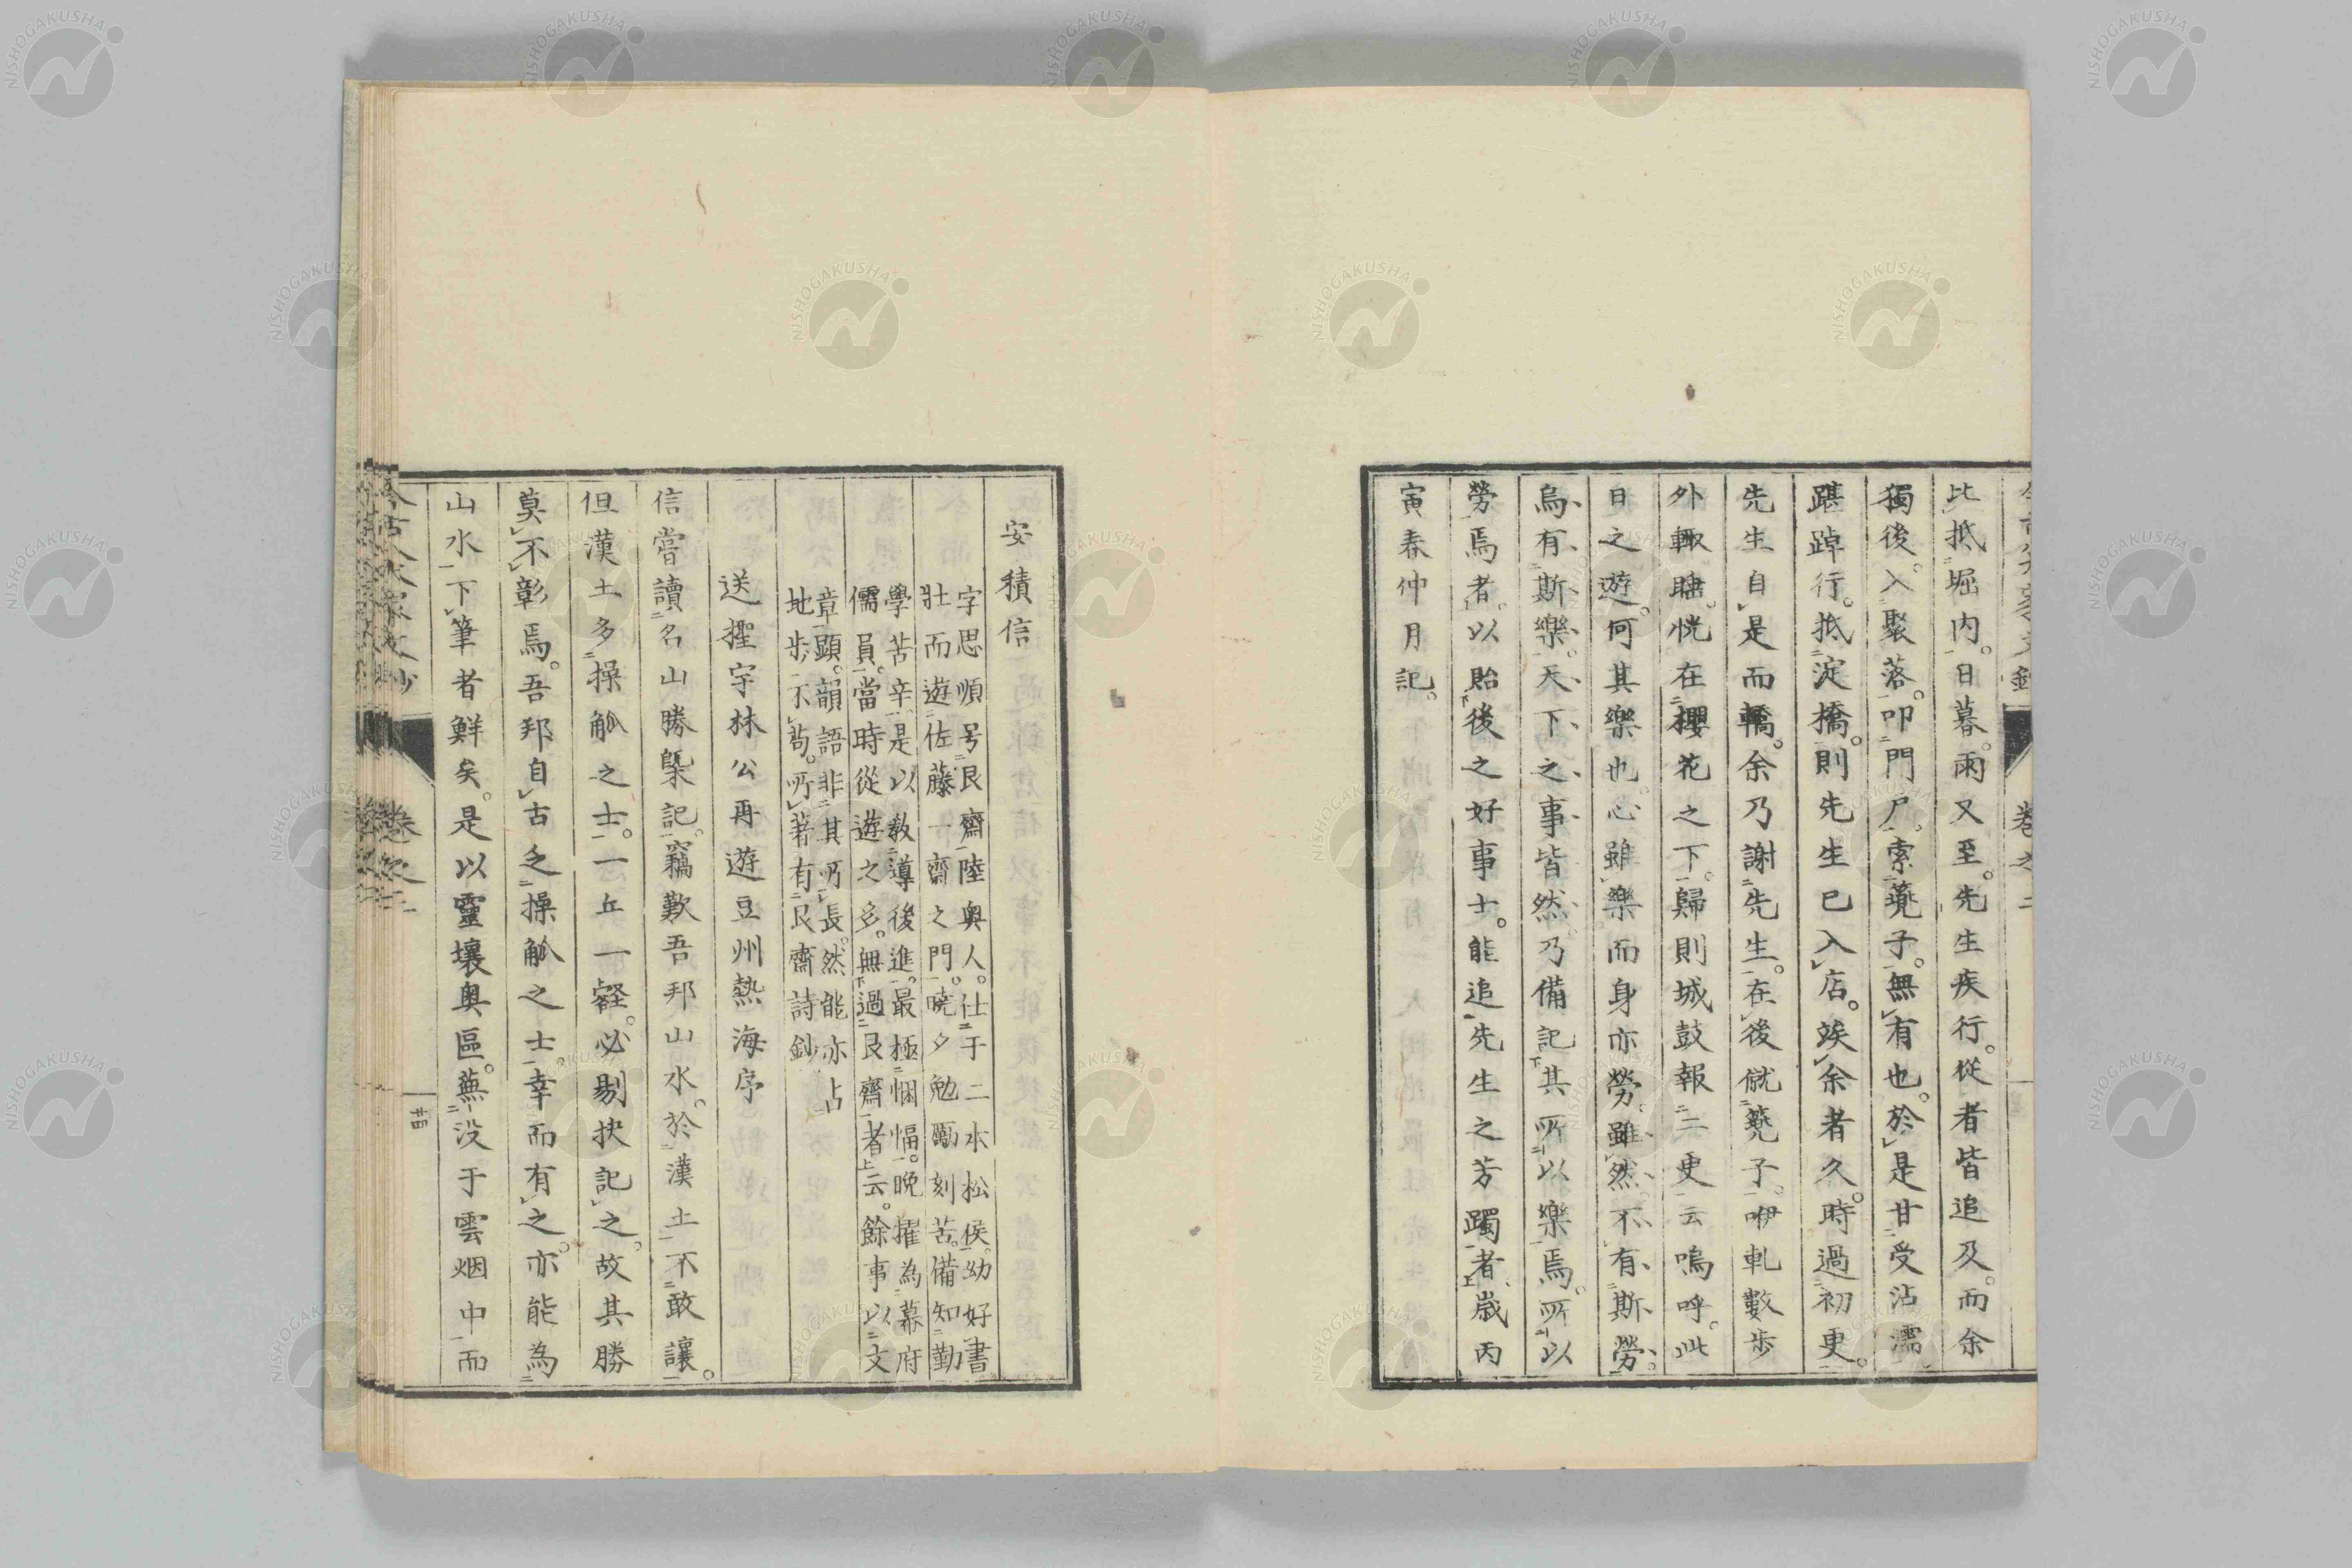 比抵堀内。日暮。雨又至。先生疾行。從者皆追及。而余
獨後。入聚落。叩門戸。索簦子。無有也。於是甘受沾濡
踸踔行。抵淀橋。則先生已入店。竢余者久。時過初更。
先生自是而轎。余乃謝先生。在後僦簦子。咿軋數步
外輙睡。恍在櫻花之下。歸則城鼓報二更云嗚呼。此
日之遊。何其樂也。心雖樂而身亦勞。雖然不有斯勞。
烏有斯樂。天下之事皆然。乃備記其所以樂焉。所以
勞焉者。以貽後之好事士。能追先生之芳躅者。歲丙
寅春仲月記。
安積信
字思順号艮齋陸奥人。仕于二本松侯。幼好書
壯而遊佐藤一齋之門。曉夕勉勵刻苦。備知勤
學苦辛。是以敎導後進。最極悃愊。晩擢為幕府
儒員。當時從遊之多。無過艮齋者云。餘事以文
章顯。韻語非其所長。然能亦占
地步不苟。所著有艮齋詩鈔
送檉宇林公再遊豆州熱海序
信嘗讀名山勝槩記。竊歎吾邦山水。於漢土不敢讓。
但漢土多操觚之士。一丘一壑。必剔抉記之。故其勝
莫不彰焉。吾邦自古乏操觚之士。幸而有之。亦能為
山水下筆者鮮矣。是以靈壤奥區。蕪没于雲烟中而
今古八大家文鈔 卷之二 廿四